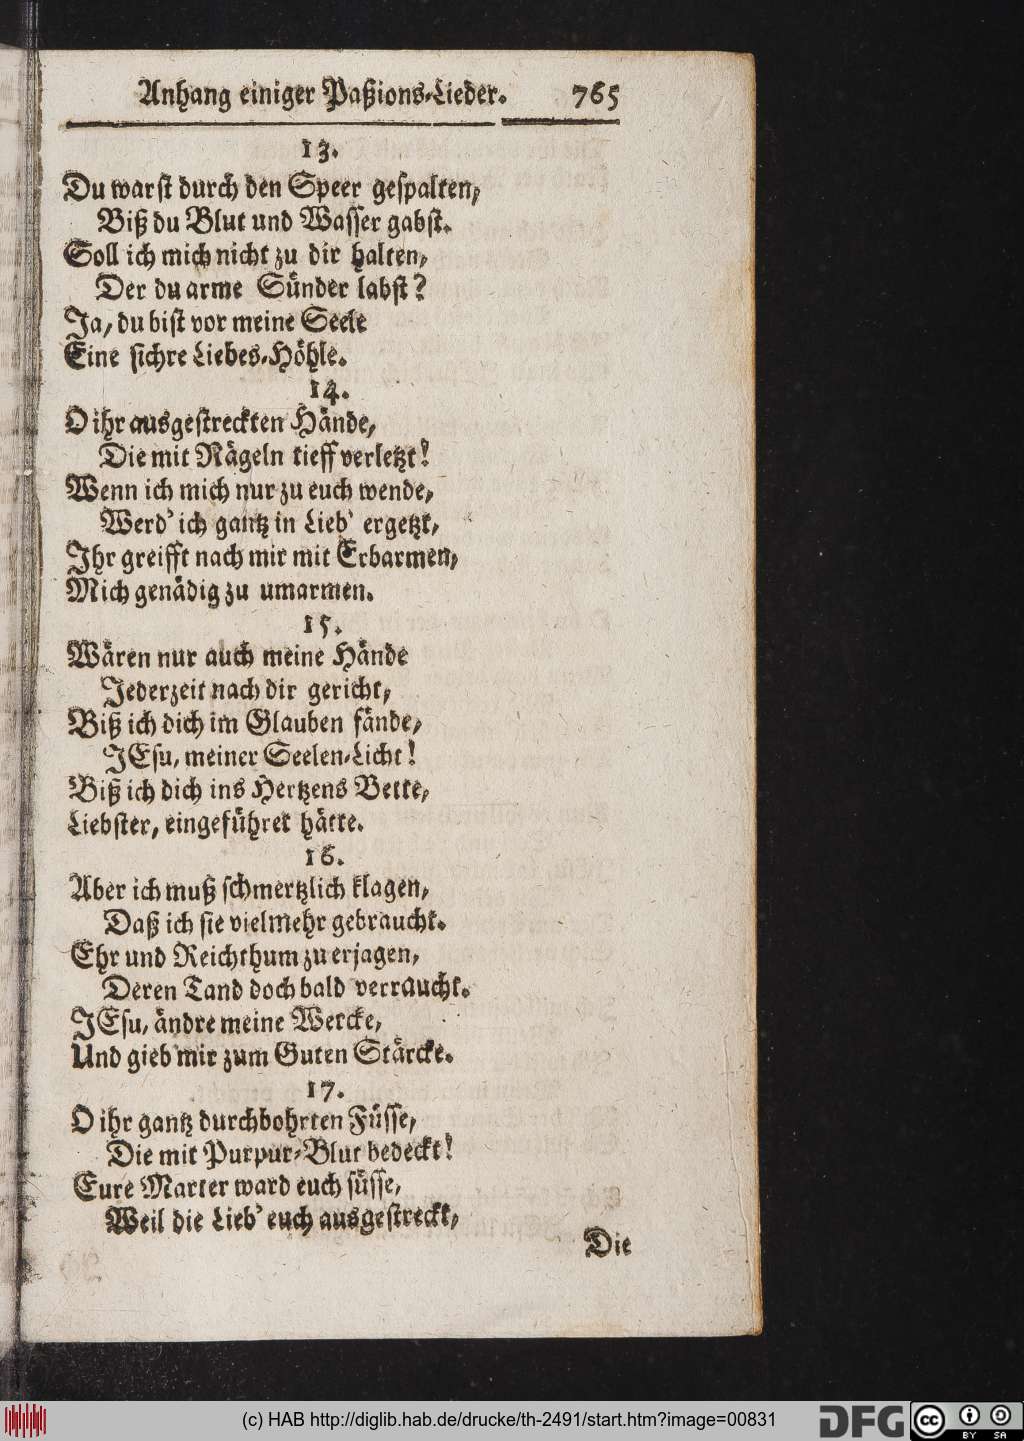 Anhang einiger Paßions-Lieder. 765
13.
Du warst durch den Speer gespalten,
Biß du Blut und Wasser gabst.
Soll ich mich nicht zu dir halten,
Der du arme Sünder labst?
Ja, du bist vor meine Seele
Eine sichre Liebes-Höhle.
14.
O ihr ausgestreckten Hände,
Die mit Nägeln tieff verletzt!
Wenn ich mich nur zu euch wende,
Werd' ich gantz in Lieb' ergetzt,
Ihr greifft nach mir mit Erbarmen,
Mich genädig zu umarmen.
15.
Wären nur auch meine Hände
Jederzeit nach dir gericht,
Biß ich dich im Glauben fände,
JEsu, meiner Seelen-Licht!
Biß ich dich ins Hertzens Bette,
Liebster, eingeführet hätte.
16.
Aber ich muß schmertzlich klagen,
Daß ich sie vielmehr gebraucht.
Ehr und Reichthum zu erjagen,
Deren Tand doch bald verraucht.
JEsu, ändre meine Wercke,
Und gieb mir zum Guten Stärcke.
17.
O ihr gantz durchbohrten Füsse,
Die mit Purpur-Blut bedeckt!
Eure Marter ward euch süsse,
Weil die Lieb' euch ausgestreckt,
Die
(c) HAB http://diglib.hab.de/drucke/th-2491/start.htm?image=00831
DFG
cc BY SA